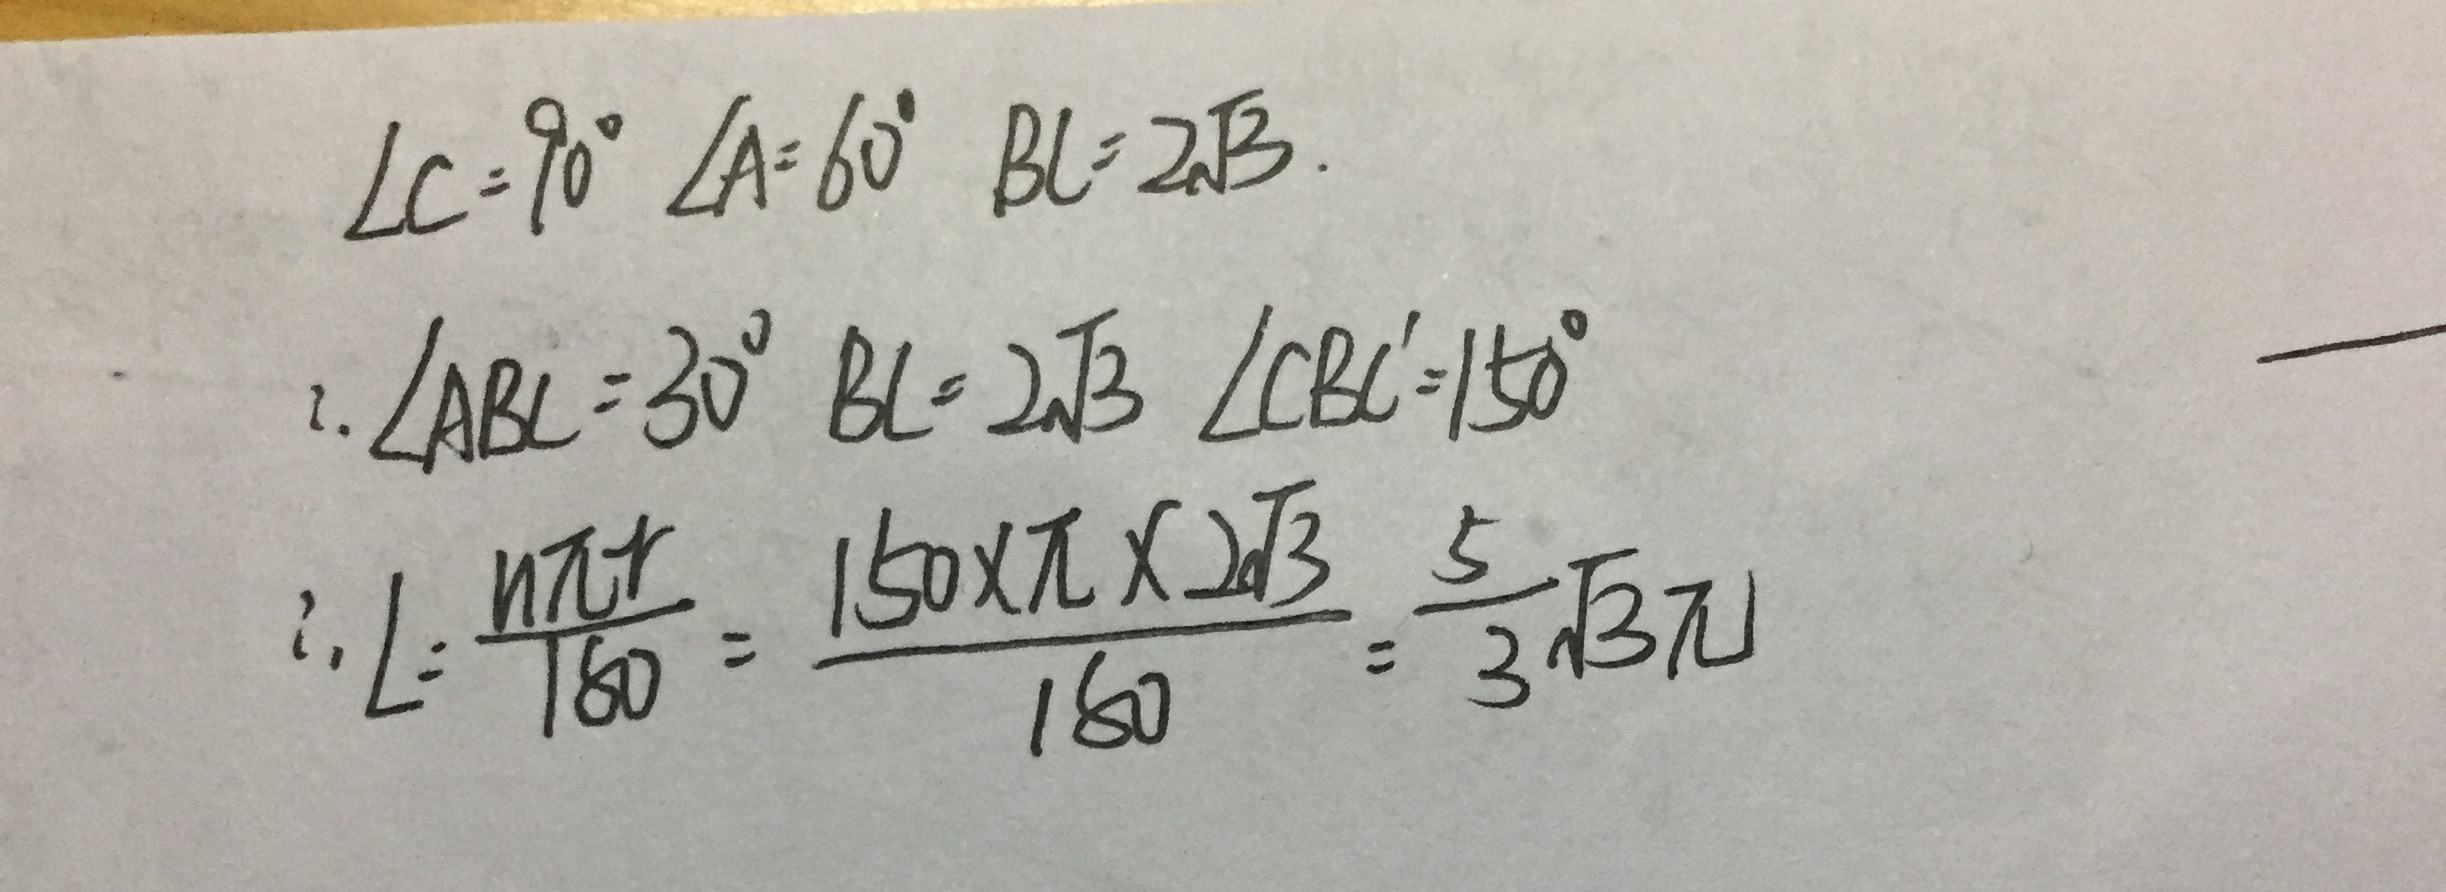 ∠C=90° ∠A=60° BC=2√3.
∴∠ABC=30° BC=2√3 ∠CBC'=150°
∴L=nπr/180=150×π×2√3/180=5/3√3π